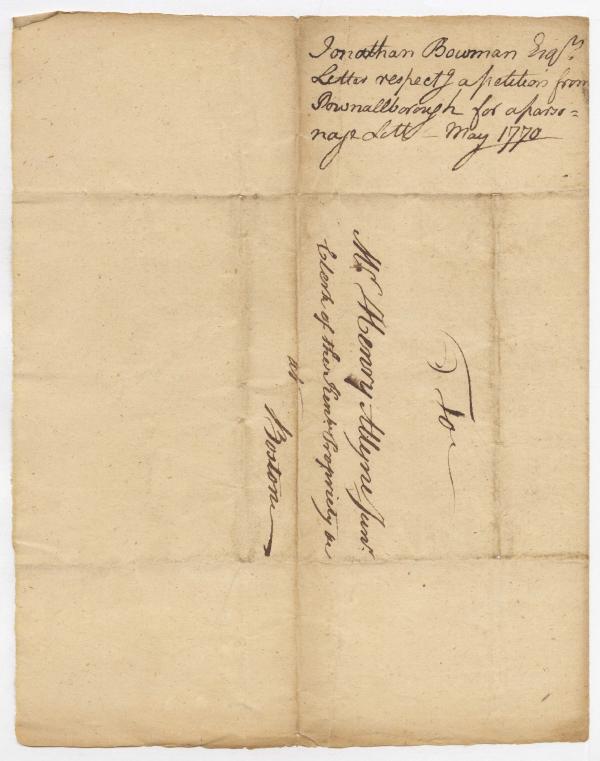 Jonathan Bowman Esqr.
Letter respectg a petition from
Pownallborough for a parso=
nage Lott - May 1770
To
Mr. Henry Alleyne Junr.
Clerk of the Kenbe Propriety &c
at
Boston